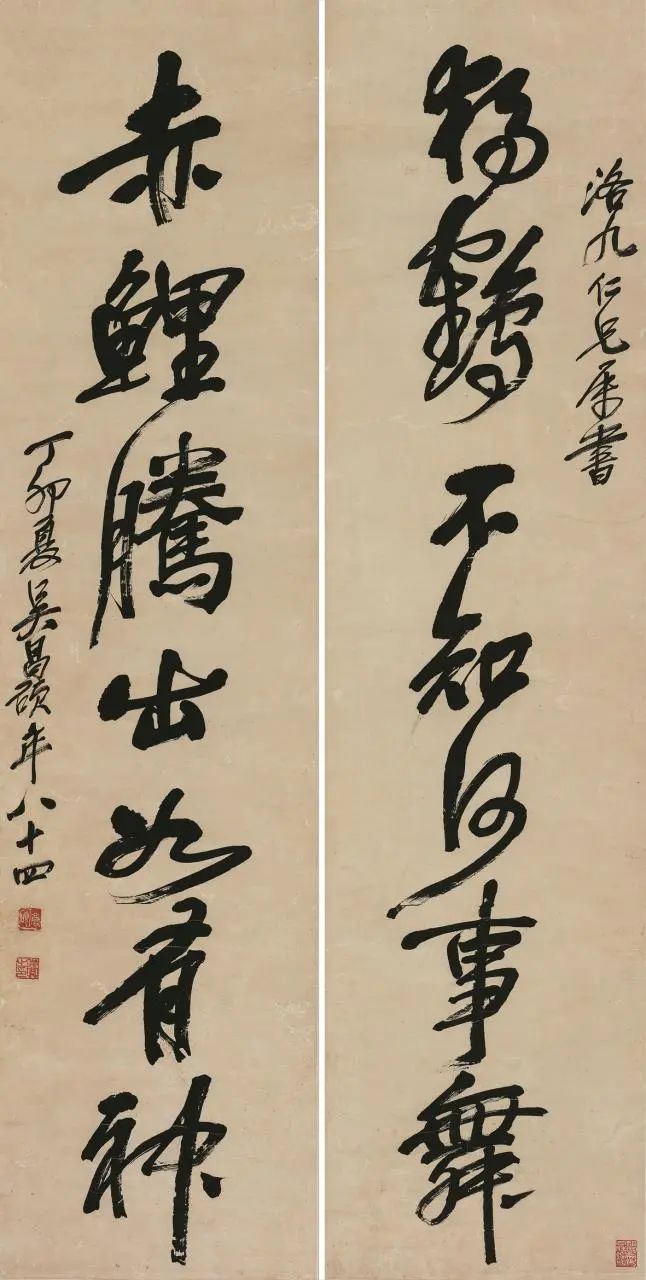 洛九仁兄属書
獨鶴不知何事舞
赤鯉騰出如有神
丁卯夏吳昌碩年八十四